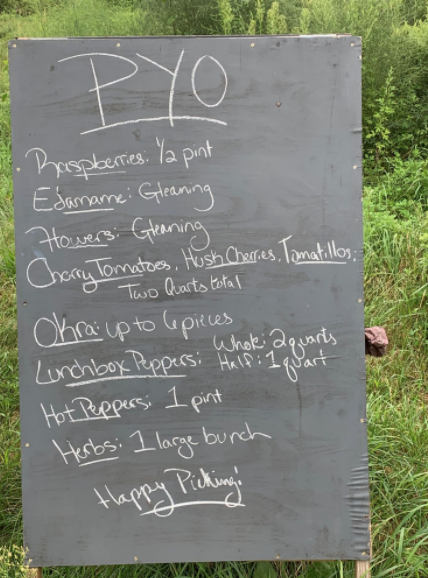 PYO
Raspberries: ½ pint
Edamame: Gleaning
Flowers: Gleaning
Cherry Tomatoes, Husk Cherries, Tomatillos:
Two Quarts total
Okra: up to 6 pieces
Lunchbox Peppers: Whole: 2 quarts
Half: 1 quart
Hot Peppers: 1 pint
Herbs: 1 large bunch
Happy Picking!